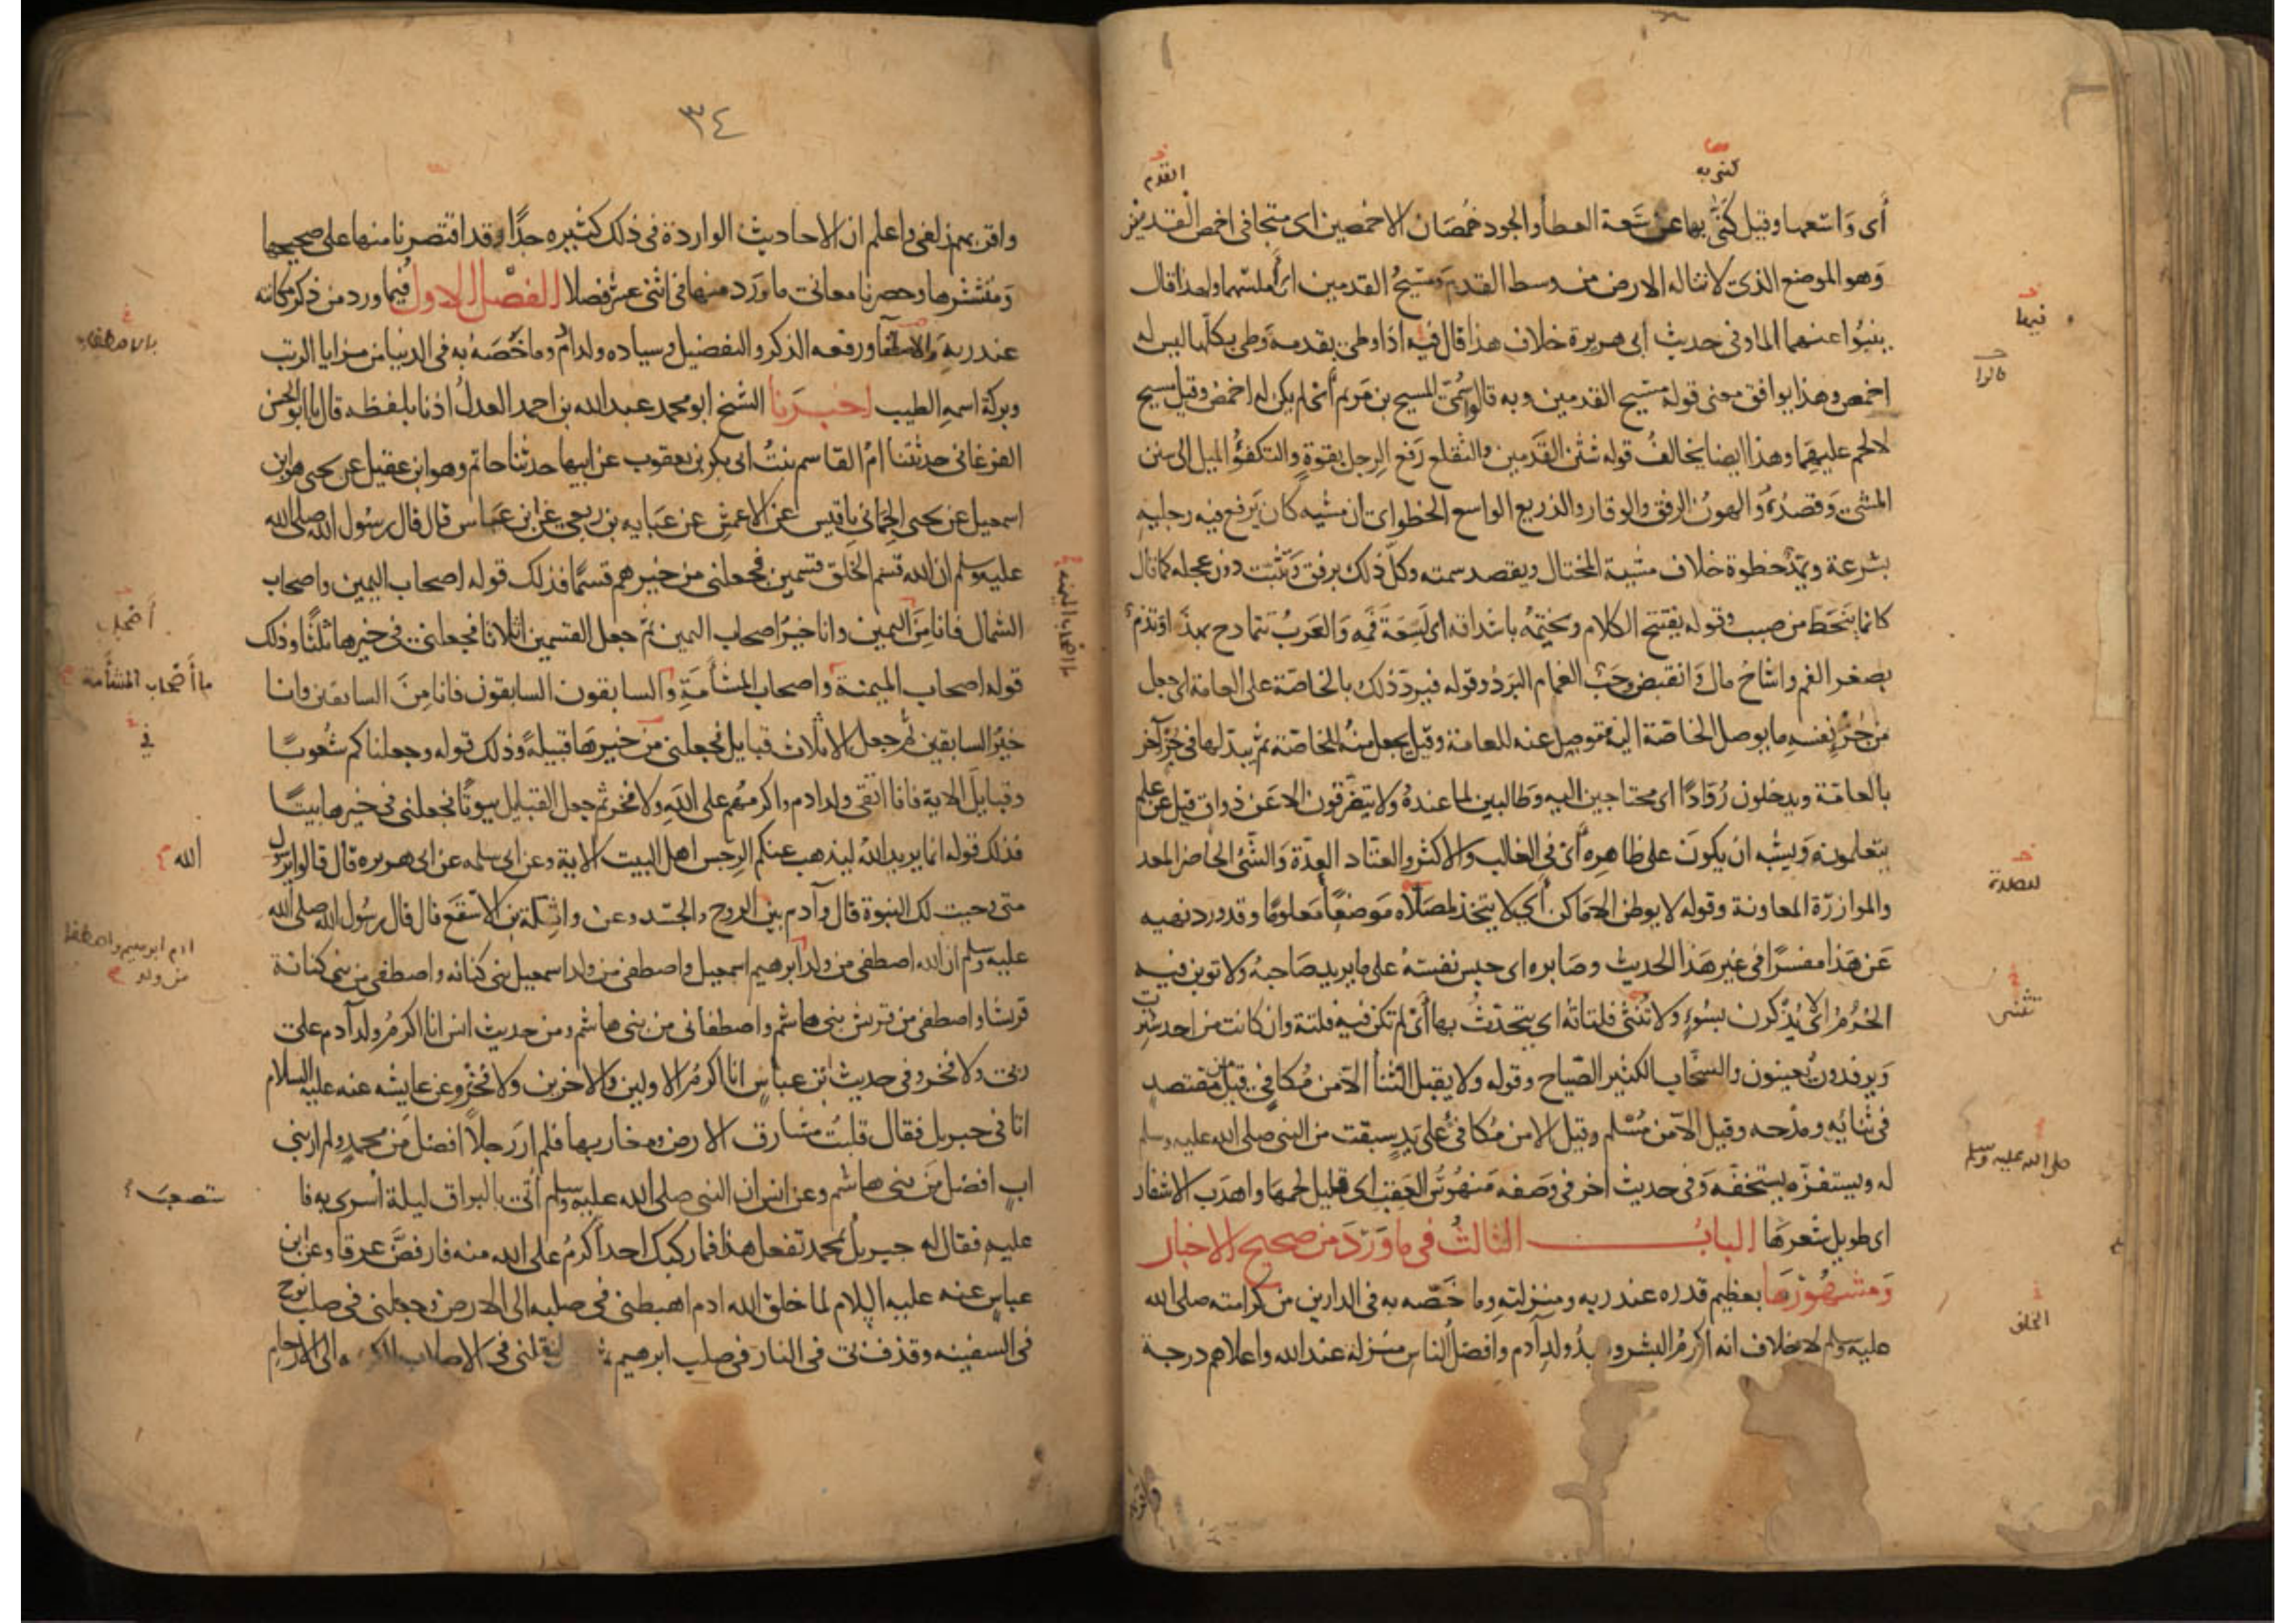 كنى به
القدم
أى وَاسعهما وقيل كَنَّى بهما عن سَعة العطأ والجود خُمْصَان الاخمصين اى متجافى اخمص القدمين
وَهو الموضع الذى لا تناله الارض من وسط القدم وَمَسيحُ القدمين اى أملسهما ولهذا قال
ينبُوا عنهما الما وفى حديث ابى هريرة خلاف هذا قال فيه اذا وطى بقدمه وَطى بكلها ليس له
اخمص وهذا يوافق معنى قوله مسيح القدمين وبه قالوا سُمّىَ المسيح بن مَريم أى لم يكن له اخمص وقيل مسيح
لا لحم عليهما وهذا ايضا يخالفُ قوله شثْن القَدَمين والتقلع رَفع الرجل بقوة والتكفؤُ الميل الى سنن
المشى وَقصْده وَالهونُ الرفق والوقار والذريع الواسع الخطو اى ان مشيه كان يَرفع فيه رجليه
بسُرعة ويمُدّ خطوة خلاف مشية المختال ويقصد سمته وكلّ ذلك برفق وَتَثَبّت دون عجله كما قال
كانما ينحَط من صبب وقوله يفتتح الكلام ويختِمُه باشداقه اى لِسَعَة فَمِه وَالعَربُ تتمادح بهذا وَتذم
بصغر الفم واشاحَ مال وَانقبض وحَبّ الغمام البَرَدُ وقوله فيردّ ذلك بالخاصّة على العامة اى جعل
من جُزْء نفسِه ما يوصل الخاصّة اليه فتوصِل عنه للعامة وقيل يجعل منهُ للخاصّة ثم يبدّلها فى جُزء آخر
بالعامّة ويدخلون رُوّادًا اى محتاجين اليه وَطالبين لما عندهُ ولا يتفَرّقون الا عَن ذواق قيل عن علم
يتعلمونه وَيشبه ان يكونَ على ظاهره أى فى الغالب والاكثر والعتاد العِدّة وَالشّئ الحاضر المعد
والموازرَة المعاونة وقوله لا يوطن الاماكن أى لا يتخذ لمصَلّاه مَوضعًا مَعلومًا وقد ورد نهيه
عَن هَذا مفسرًا فى غير هَذا الحديث وصَابره اى حبس نفسَهُ على ما يريد صَاحبهُ ولا توبن فيه
الحُرُمُ اى لا يُذكَرون بسُوءٍ ولا تُنثَى فلتاته اى يتحدّثُ بها أى لم تكن فيه فلتة وان كانت من احد سُترت
وَيرفدون يُعينون والسّخّاب الكثير الصّياح وقوله ولا يقبل الثنأ الا من مُكافئ قيل من مقتصد
فى ثنائه ومدْحه وقيل الا من مُسْلم وقيل الا من مُكافئ على يَدٍ سبقت من النبى صلى الله عليه وسلم
له ويستفزّه يستخفّه وَفى حديث اخر فى وَصفه مَنهُوسُ العَقب اى قليل لحمها واهدَب الاشفار
اى طويل شعرها البابُ الثالثُ فى ما وَرَدَ من صحيح الاخبار
وَمشهُوْرهَا بعظيم قدره عند ربه ومنزلته وما خَصّه به فى الدارين من كرامته صلى الله
عليه وسلم لا خلاف انه اكرمُ البشر وسيدُ ولد آدم وافضلُ الناس منزلة عند الله واعلاهم درجة
فيها
قالوا
تنثى
صلى الله عليه وسلم
الخلق
٣٤
واقربهم زلفى واعلم ان الاحاديث الواردة فى ذلك كثيره جدًا وقد اقتصرنا منها على صحيحها
وَمُنتشرها وحصرنا معانى ما وَرَد منها فى اثنى عشر فصلا الفصْل الاول فيما ورد من ذكر مكانه
عند ربه والاصطفآ ورفعه الذكر والتفضيل وسياده ولد آدم وما خَصّهُ به فى الدنيا من مزايا الرتب
وبركة اسمه الطيب اخبرَنا الشيخ ابو محمد عبد الله بن احمد العدلُ اذنا بلفظه قال نا ابو الحسن
الفرغانى حدثتنا امُ القاسم بنتُ ابى بكر بن يعقوب عن ابيها حدثنا حاتم وهو ابن عقيل عن يحيى هو ابن
اسمعيل عن يحيى الحِمّانى نا قيس عن الاعمش عن عبايه بن ربعى عن ابن عباس قال قال رسُول الله صلى الله
عليه وسلم ان الله قسَم الخلق قسمين فجعلنى من خيرهم قسمًا فذلك قوله اصحاب اليمين واصحاب
الشمال فانا من اليمين وانا خيرُ اصحاب اليمين ثمّ جعل القسمين اثلاثا فجعلنى فى خيرها ثلثًا وذلك
قوله اصحاب الميمنة واصحاب المشأمَة والسابقون السابقون فانا مِنَ السابقين وانا
خيرُ السابقين ثم جعل الاثلاث قبايل فجعلنى من خيرها قبيلةً وذلك قوله وجعلناكم شُعوبًا
وقبايلَ الاية فانا اتقى ولد ادم واكرمهُم على الله ولا فخر ثم جعل القبايل بيوتًا فجعلنى فى خيرها بيتًا
فذلك قوله انما يريد اللهُ ليذهب عنكم الرجس اهل البيت الاية وعن ابى سلمه عن ابى هريره قال قالوا يرسول
متى وجبت لك النبوة قال وآدم بين الروح والجسَد وعن واثِلة بن الاسْقَع قال قال رسُول الله صلى الله
عليه وسلم ان الله اصطفى من ولد ابرهيم اسمعيل واصطفى من ولد اسمعيل بنى كنانه واصطفى من بنى كنانة
قريشا واصطفى من قريش بنى هاشم واصطفانى من بنى هاشم ومن حديث انس انا اكرمُ ولد آدم على
ربى ولا فخر وفى حديث ابن عباسٍ انا اكرمُ الاولين والاخرين ولا فخْرَ وعن عايشه عنه عليه السلام
اتانى جبريل فقال قلبْتُ مشارق الارض ومغاربها فلم ارَ رجلاً افضل مِن محمدٍ ولم ار بنى
ابٍ افضل مِنْ بنى هاشم وعن انس ان النبى صلى الله عليه وسلم أُتى بالبراق ليلة أُسرى به فا
عليه فقال له جبريلُ بمحمد تفعل هذا فما ركبك احد اكرمُ على الله منه فارفضَّ عرقا وعن ابن
عباسٍ عنه عليه السلام لما خلق الله ادم اهبطنى فى صلبه الى الارض وجعلنى فى صلب نوح
فى السفينه وقذف بى فى النار فى صلب ابرهيم ثم ينقلنى فى الاصلاب الى الارحام
بالاصطفاء
أصْحاب
ما أصْحاب المشأمة
فى
الله
ادم ابرهيم واصطفا
من ولد